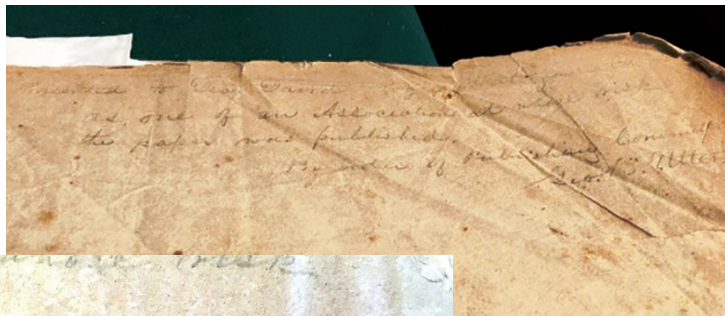 Presented to
as one of an Association at whose risk
the paper was published.
By order of Publishing Commit
Geo. B. Utter